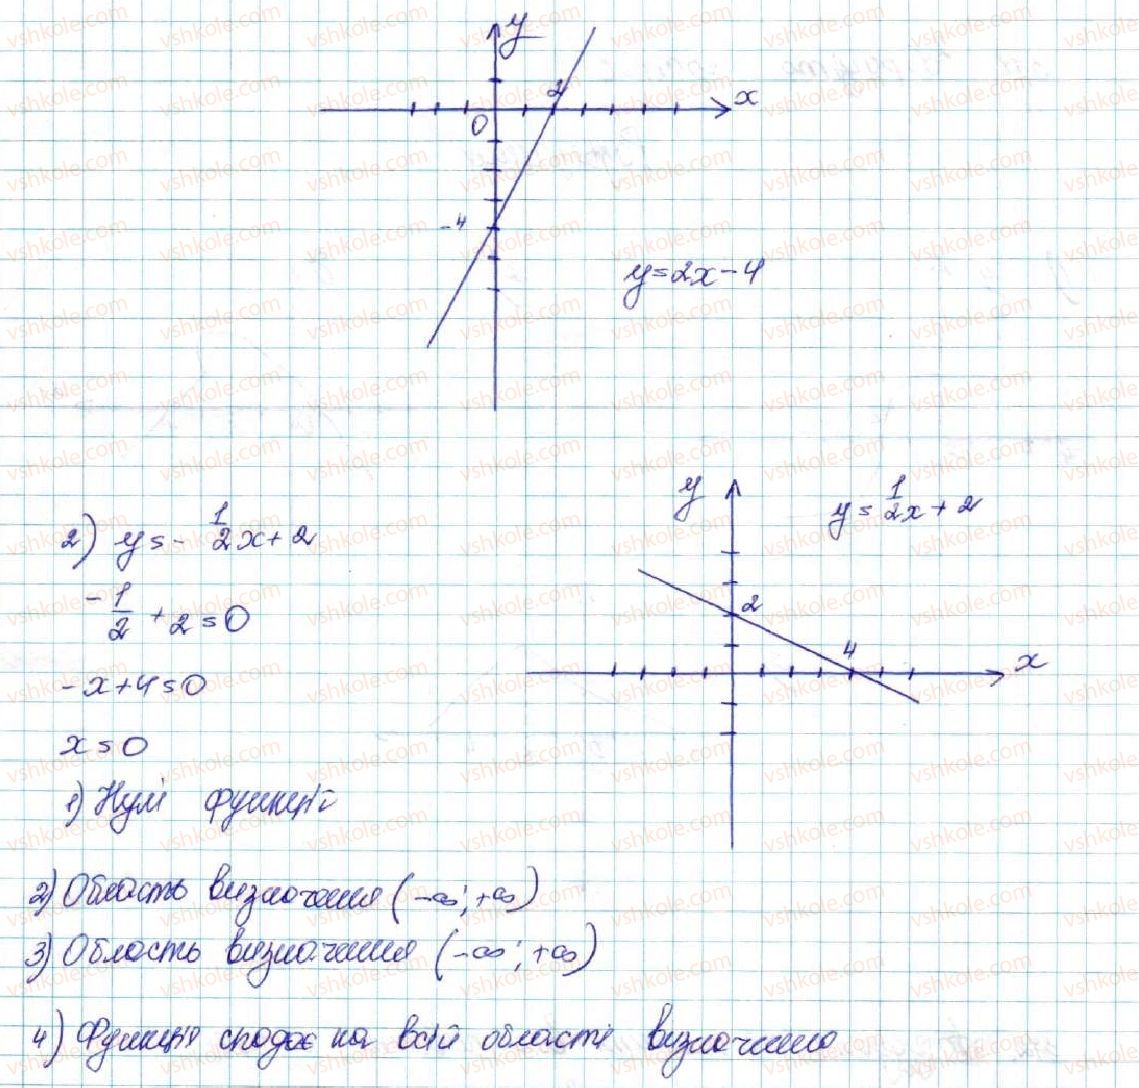 y
2
x
0
-4
y=2x-4
y
y=1/2x+2
2) y=-1/2x+2
-1/2+2=0
2
4
x
-x+4=0
x=0
1) Нулі функції
2) Область визначення (-∞;+∞)
3) Область визначення (-∞;+∞)
4) Функція спадає на всій області визначено
vshkole.com